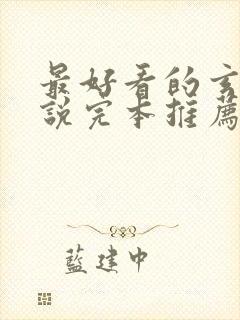 最好看的玄
說完本推薦
藍建中